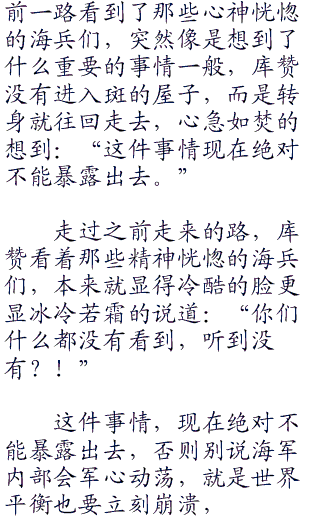 前一路看到了那些心神恍惚
的海兵们，突然像是想到了
什么重要的事情一般，库赞
没有进入斑的屋子，而是转
身就往回走去，心急如焚的
想到：“这件事情现在绝对
不能暴露出去。”
走过之前走来的路，库
赞看着那些精神恍惚的海兵
们，本来就显得冷酷的脸更
显冰冷若霜的说道：“你们
什么都没有看到，听到没
有？！”
这件事情，现在绝对不
能暴露出去，否则别说海军
内部会军心动荡，就是世界
平衡也要立刻崩溃，